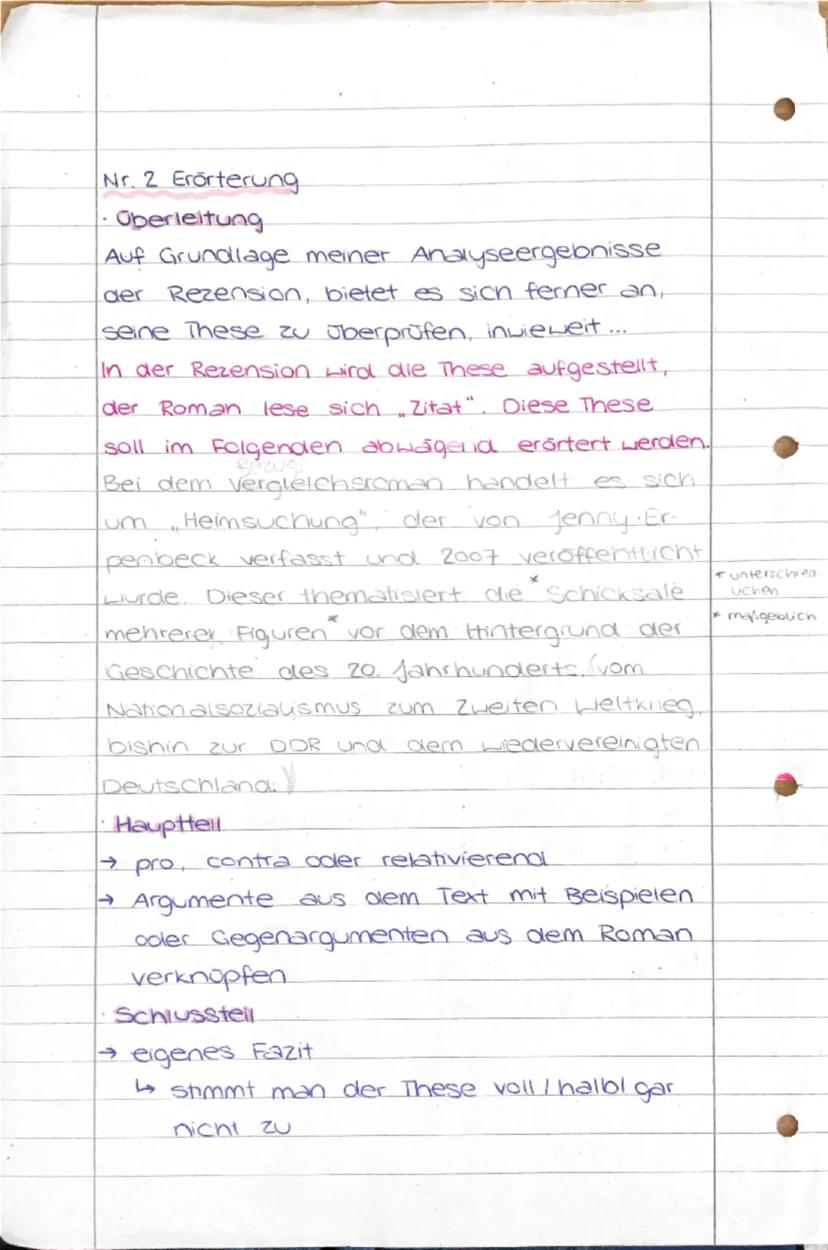 Nr. 2 Erörterung
· Überleitung
Auf Grundlage meiner Analyseergebnisse
der Rezension, bietet es sich ferner an,
seine These zu überprüfen, inwieweit...
In der Rezension wird die These aufgestellt,
der Roman lese sich „Zitat". Diese These
soll im Folgenden abwägend erörtert werden.
Bezug
Bei dem Vergleichsroman handelt es sich
um „Heimsuchung", der von Jenny Er-
penbeck verfasst und 2007 veröffentlicht
wurde. Dieser thematisiert die * Schicksale
* unterschied
lichen
mehrerer Figuren * vor dem Hintergrund der
* maßgeblich
Geschichte des 20. Jahrhunderts. (vom
Nationalsozialismus zum Zweiten Weltkrieg,
bishin zur DDR und dem wiedervereinigten
Deutschland.)
· Hauptteil
→ pro, contra oder relativierend
→ Argumente aus dem Text mit Beispielen
oder Gegenargumenten aus dem Roman
verknüpfen
· Schlussteil
→ eigenes Fazit
↳ stimmt man der These voll / halb / gar
nicht zu